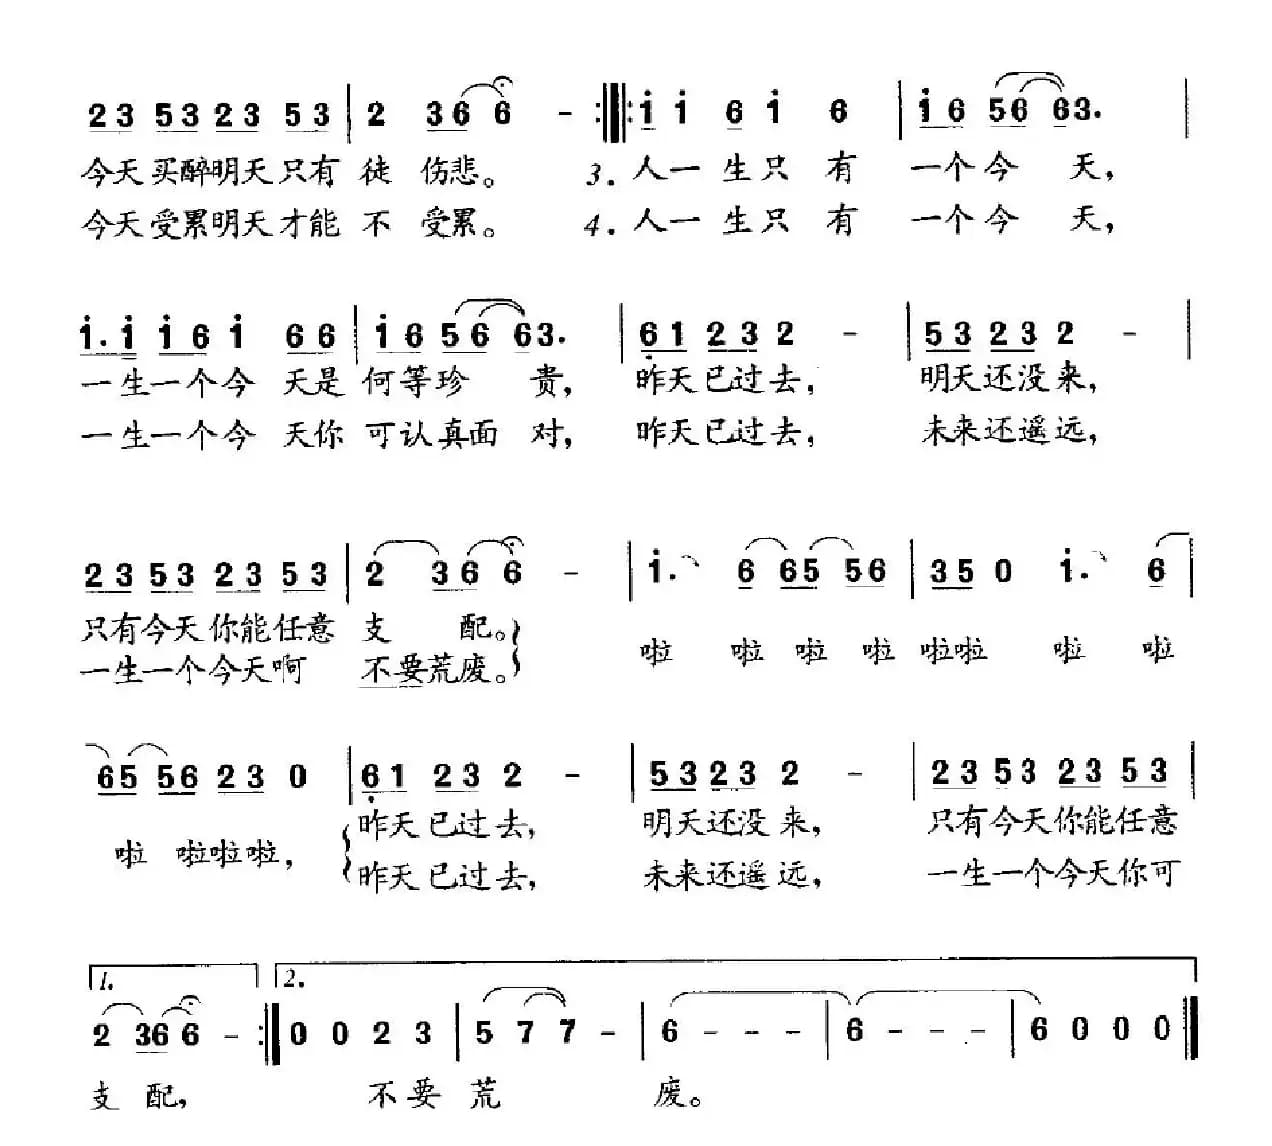 23 53 23 53 | 2 36 6 - :‖: i i 6 i 6 | i 6 56 63. |
今天买醉明天只有 徒 伤悲。 3. 人一 生只 有 一个今 天，
今天受累明天才能 不 受累。 4. 人一 生只 有 一个今 天，
i. i i 6 i 66 | i 6 5 6 63. | 61 23 2 - | 53 23 2 - |
一生一个今 天是 何等珍 贵， 昨天已过去， 明天还没来，
一生一个今 天你 可认真面 对， 昨天已过去， 未来还遥远，
23 53 23 53 | 2 36 6 - | i. 6 65 56 | 35 0 i. 6 |
只有今天你能任意 支 配。
一生一个今天啊 不要荒废。
啦 啦 啦 啦 啦啦 啦 啦
65 56 23 0 | 61 23 2 - | 53 23 2 - | 23 53 23 53 |
啦 啦啦啦，
昨天已过去， 明天还没来， 只有今天你能任意
昨天已过去， 未来还遥远， 一生一个今天你可
1. 2.
2 36 6 - :‖ 0 0 2 3 | 5 7 7 - | 6 - - - | 6 - - - | 6 0 0 0 ‖
支 配， 不要 荒 废。